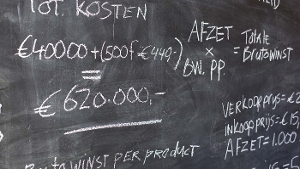 TOT. KOSTEN
€40000 + (500 f €440-)
€620.000,-
AFZET
×
BW. PP.
= Totale
Brutowinst
VERKOOPPRIJS = €
INKOOPPRIJS = €15,
AFZET = 1.000
BrutoWINST PER PRODUCT